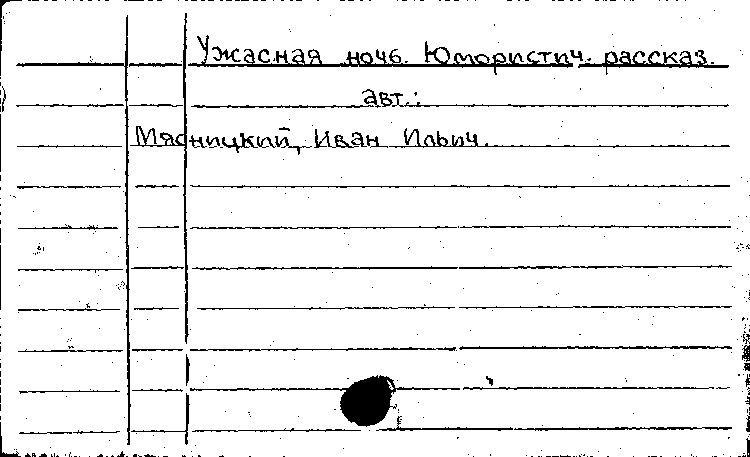 Ужасная ночь. Юмористич. рассказ.
авт.:
Мясницкий, Иван Ильич.